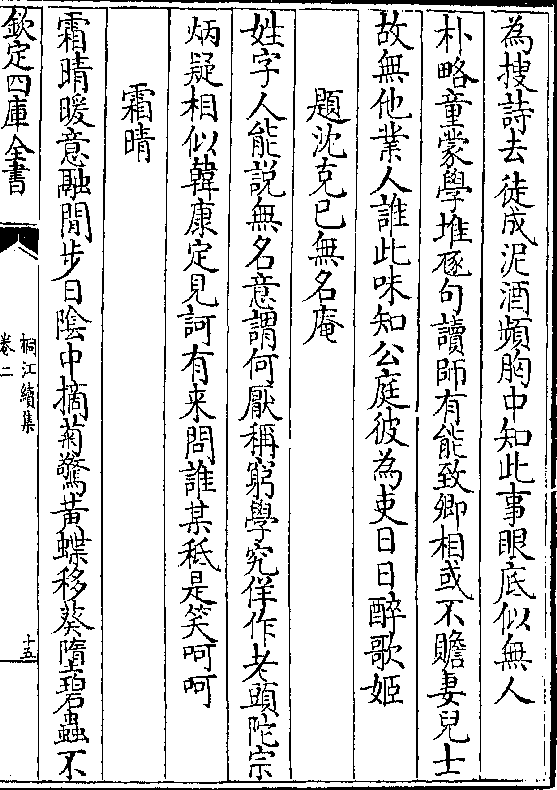 為搜詩去徒成泥酒頻胸中知此事眼底似無人
朴略童蒙學堆豗句讀師有能致卿相或不贍妻兒士
故無他業人誰此味知公庭彼為吏日日醉歌姬
題沈克己無名庵
姓字人能說無名意謂何厭稱窮學究佯作老頭陀宗
炳疑相似韓康定見訶有来問誰某秪是笑呵呵
霜晴
霜晴暖意融閒步日陰中摘菊驚黃蝶移葵墮碧蟲不
欽定四庫全書
桐江續集
卷二
十五